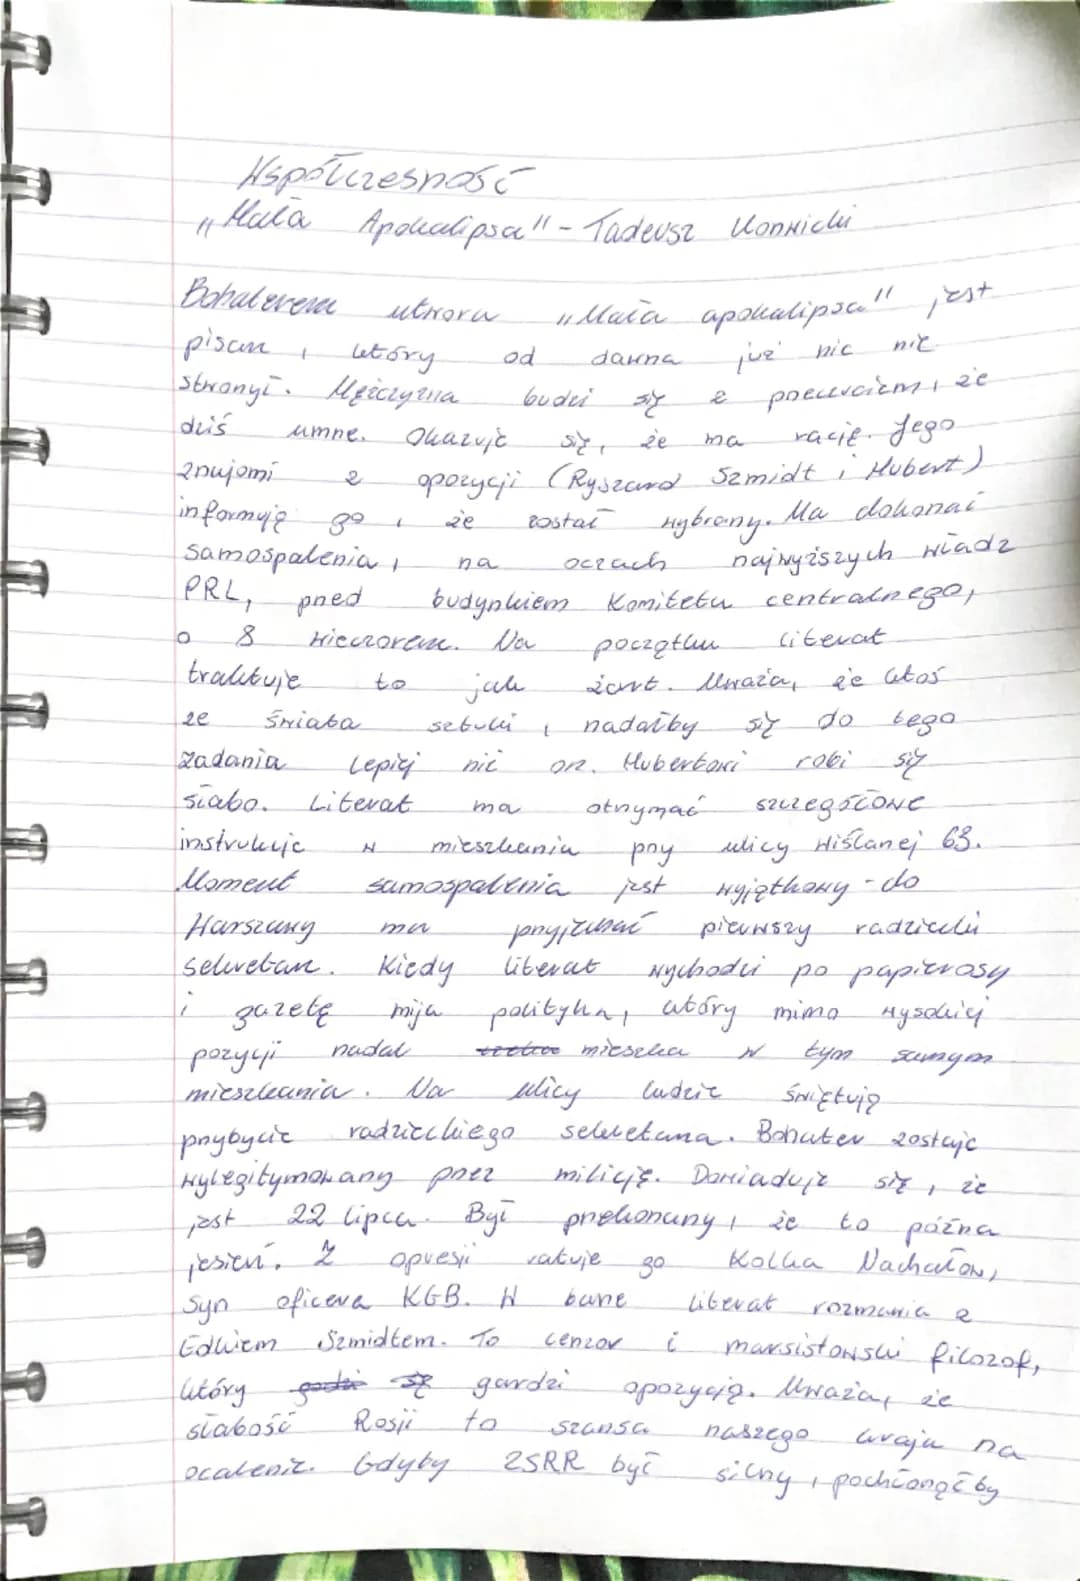 Współczesność
„Mała Apokalipsa" - Tadeusz Konwicki
Bohaterem utworu „Mała apokalipsa" jest
pisarz, który od dawna już nic nie
stworzył. Mężczyzna budzi się z przeczuciem, że
dziś umrze. Okazuje się, że ma rację. Jego
znajomi z opozycji (Ryszard Szmidt i Hubert)
informują go, że został wybrany. Ma dokonać
samospalenia, na oczach najwyższych władz
PRL, przed budynkiem Komitetu centralnego,
o 8 wieczorem. Na początku literat
traktuje to jak żart. Uważa, że ktoś
ze świata sztuki, nadałby się do tego
zadania lepiej niż on. Hubertowi robi się
słabo. Literat ma otrzymać szczegółowe
instrukcje w mieszkaniu przy ulicy Wiślanej 63.
Moment samospalenia jest wyjątkowy - do
Warszawy ma przyjechać pierwszy radziecki
sekretarz. Kiedy literat wychodzi po papierosy
i gazetę mija polityka, który mimo wysokiej
pozycji nadal mieszka w tym samym
mieszkaniu. Na ulicy ludzie świętują
przybycie radzieckiego sekretarza. Bohater zostaje
wylegitymowany przez milicję. Dowiaduje się, że
jest 22 lipca. Był przekonany, że to późna
jesień. Z opresji ratuje go Kolka Nachałow,
syn oficera KGB. W barze literat rozmawia z
Edkiem Szmidtem. To cenzor i marsistowski filozof,
który gardzi opozycją. Uważa, że
słabość Rosji to szansa naszego kraju na
ocalenie. Gdyby ZSRR był silny, pochłonąłby